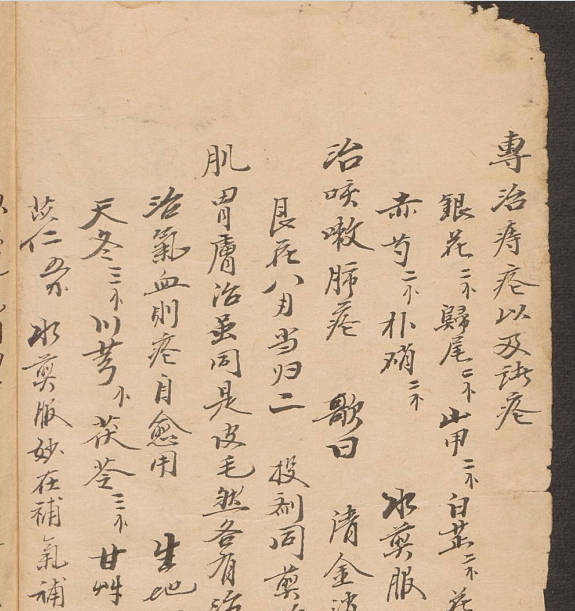 專治痔瘡以及諸瘡
銀花二不歸尾二不山甲二不白芷二不花
赤芍二不朴硝二不 水煎服
治咳嗽肺瘡 歌曰 清金消
艮花八月当归二 投剂同煎
肌胃膚治虽同是皮毛然各有治
治氣血則瘡自愈用 生地
天冬三不川芎不茯苓三不甘艸
苡仁 水煎服妙在補氣補